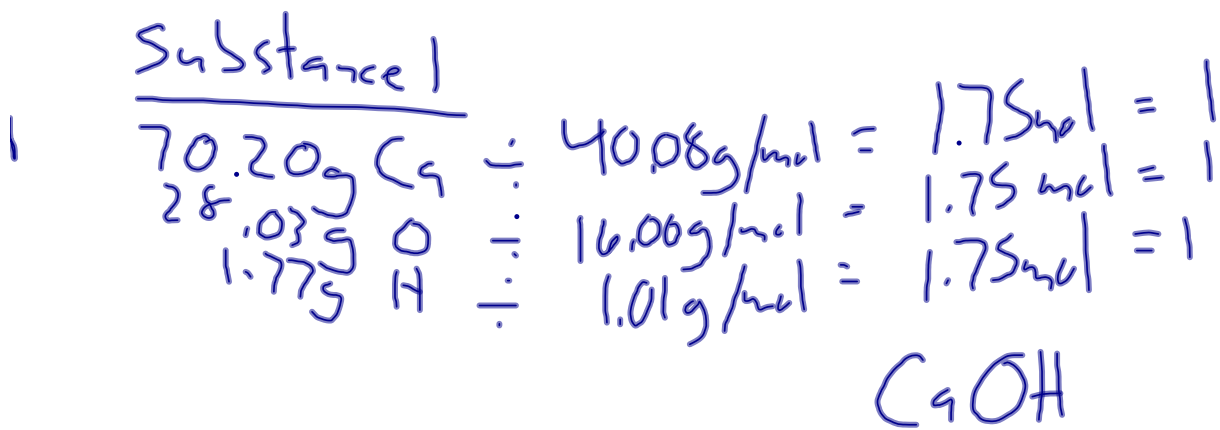 Substance 1
70.20g Ca ÷ 40.08g/mol = 1.75mol = 1
28.03g O ÷ 16.00g/mol = 1.75 mol = 1
1.77g H ÷ 1.01g/mol = 1.75mol = 1
CaOH